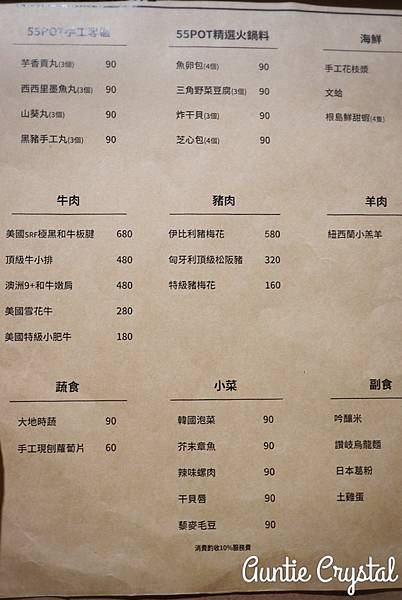 55POT手工
芋香貢丸(3個) 90
西西里墨魚丸(3個) 90
山葵丸(3個) 90
黑豬手工丸(3個) 90
55POT精選火鍋料
魚卵包(4個) 90
三角野菜豆腐(3個) 90
炸干貝(3個) 90
芝心包(4個) 90
海鮮
手工花枝漿
文蛤
根島鮮甜蝦(4隻)
牛肉
美國SRF極黑和牛板腱 680
頂級牛小排 480
澳洲9+和牛嫩肩 480
美國雪花牛 280
美國特級小肥牛 180
豬肉
伊比利豬梅花 580
匈牙利頂級松阪豬 320
特級豬梅花 160
羊肉
紐西蘭小羔羊
蔬食
大地時蔬 90
手工現刨蘿蔔片 60
小菜
韓國泡菜 90
芥末章魚 90
辣味螺肉 90
干貝唇 90
藜麥毛豆 90
副食
吟釀米
讚岐烏龍麵
日本葛粉
土雞蛋
消費酌收10%服務費
Auntie Crystal